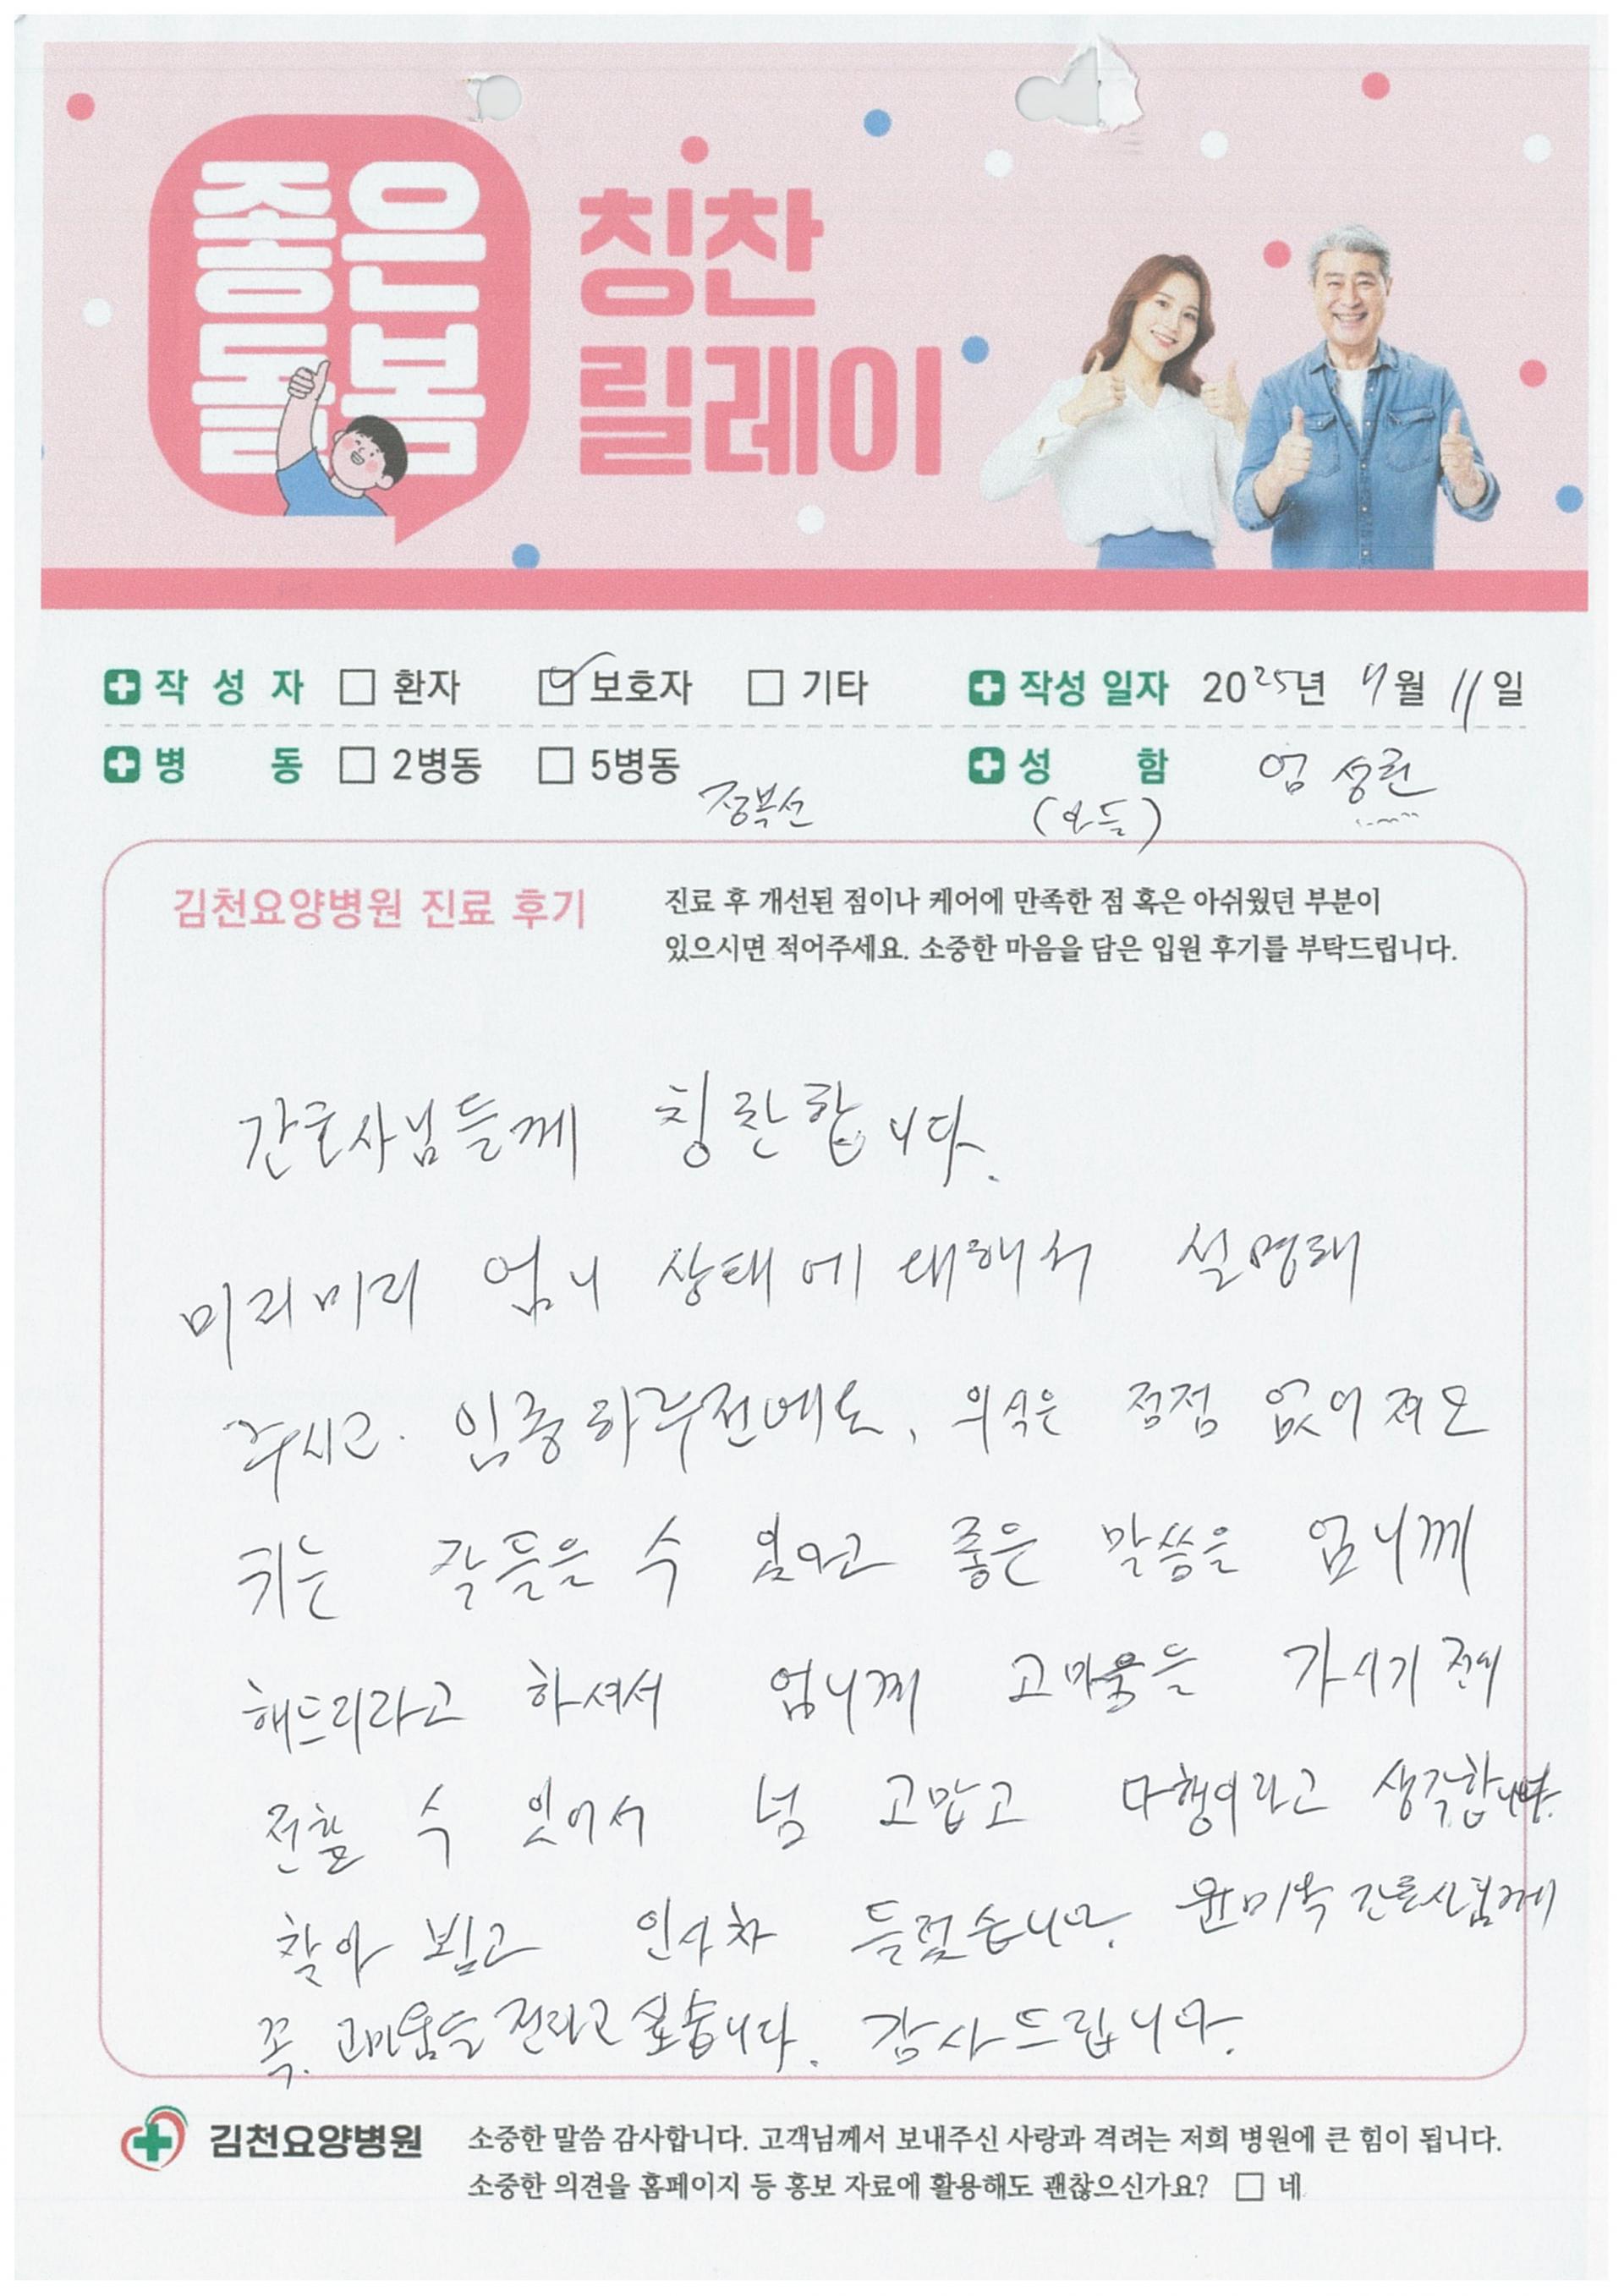 좋은
돌봄
칭찬
릴레이
작 성 자 □ 환자 ☑ 보호자 □ 기타
작성 일자 2025년 11일
병 동 □ 2병동 □ 5병동
성 함 엄 성
정복선 (아들)
김천요양병원 진료 후기
진료 후 개선된 점이나 케어에 만족한 점 혹은 아쉬웠던 부분이
있으시면 적어주세요. 소중한 마음을 담은 입원 후기를 부탁드립니다.
간호사님들께 칭찬합니다.
미리미리 엄니 상태에 대해서 설명해
주시고. 임종하루전에도, 의식은 점점 없어져도
귀는 잘들을 수 있다고 좋은 말씀을 엄니께
해드리라고 하셔서 엄니께 고마움을 가시기 전에
전할 수 잇어서 넘 고맙고 다행이라고 생각합니다.
찾아 뵙고 인사차 들렸습니다. 윤미숙 간호사님께
꼭. 고마움을 전하고 싶습니다. 감사드립니다.
김천요양병원
소중한 말씀 감사합니다. 고객님께서 보내주신 사랑과 격려는 저희 병원에 큰 힘이 됩니다.
소중한 의견을 홈페이지 등 홍보 자료에 활용해도 괜찮으신가요? □ 네